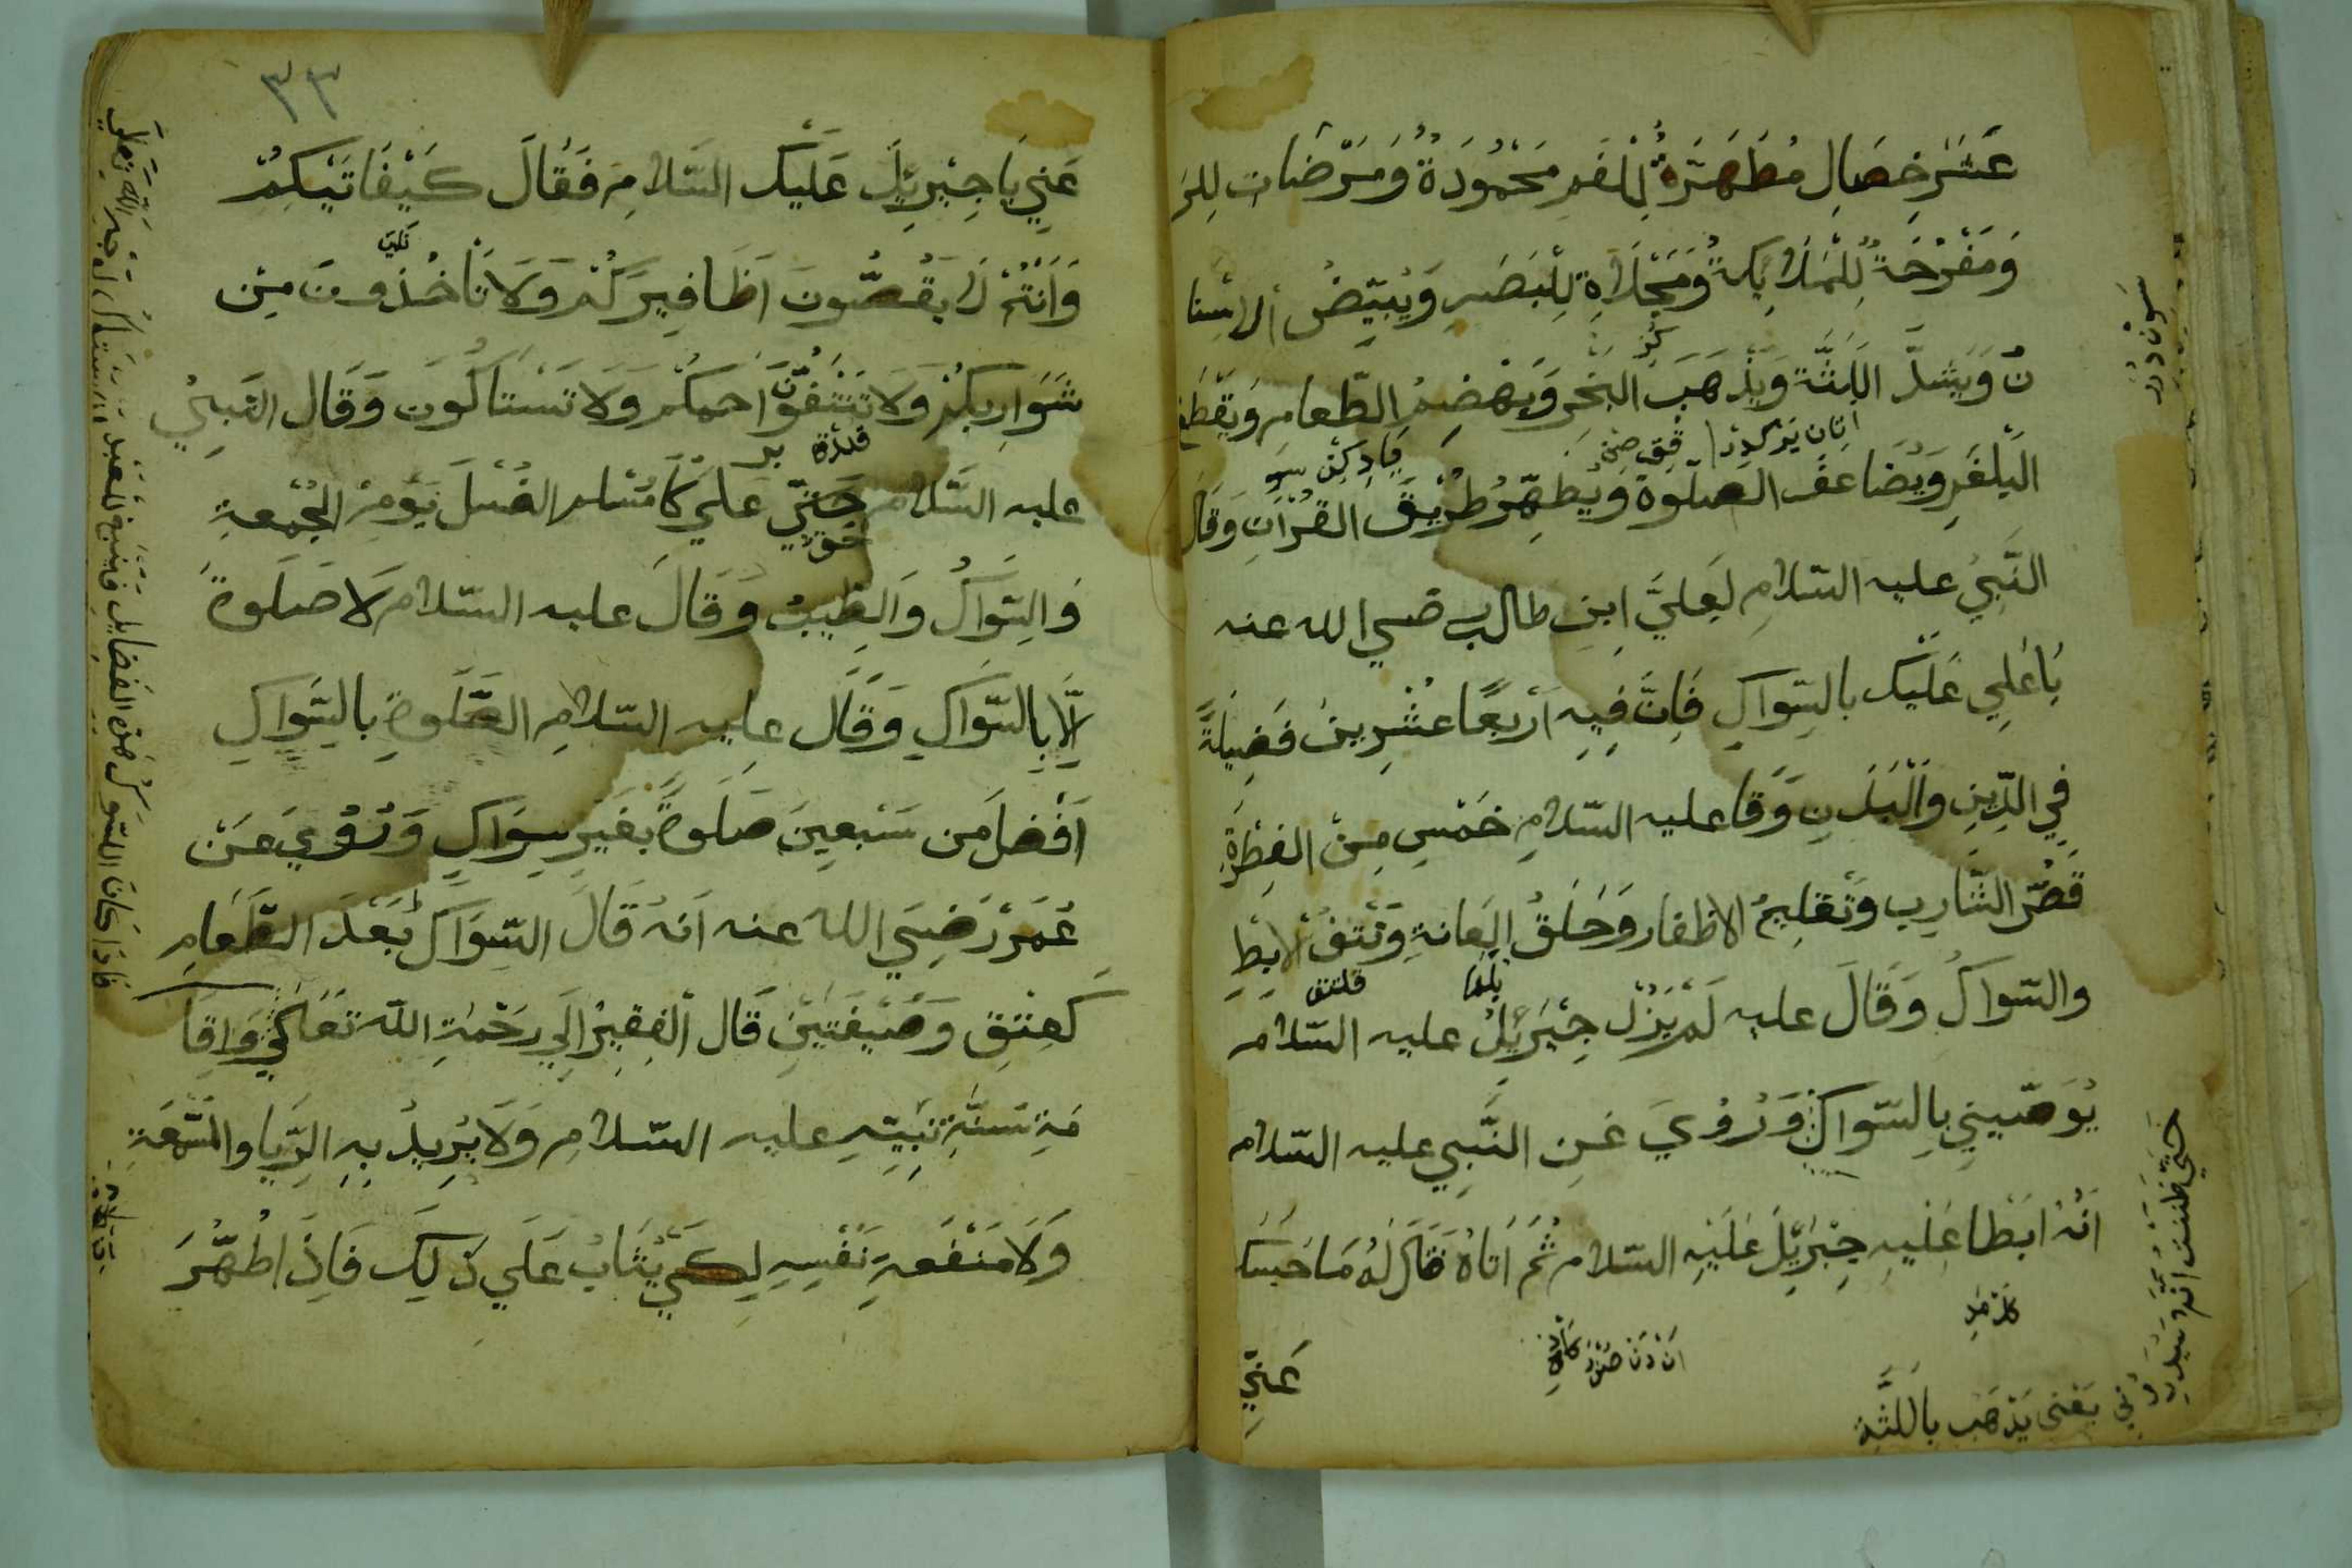 عَشَرَ خِصَالٍ مُطَهَرَةٌ لِلْفَمِ مَحْمُودَةٌ وَمَرْضَات لِلرَ
وَمَفْرَحَةٌ لِلْمَلَايِكَةُ وَمَجْلَاةِ لِلْبَصَرِ وَيُبَيِّضُ الاسْنا
نُ وَيَشُدَّ اللِثَّة وَيَذْهَبَ البَخَرِ وَيَهْضِمُ الطَّعامِ وَيَقْطَع
البَلْغَمِ وَيُضَاعَفَ الصلوة وَيُطَهِّرُ طُرِيقَ القُرْآنِ وَقَالَ
النَّبِيُ عليه السّلامِ لِعَلِيَّ ابنِ طالب رضي الله عنه
يَاعَلِي عَلَيْكَ بالسِوَاكِ فَاِنَّ فِيهِ اَرْبَعًا عشْرِينَ فَضِيلَةً
فِي الدِّينِ وَالْبَدَنِ وَقَا عليه السّلامِ خَمْسِ مِنْ الفِطْرَةِ
قَصُّ الشَّارِبِ وَتَقلِيمُ الاظفار وَحَلَقُ العانةِ وَنَتفُ الاِبْطِ
والسّواكُ وَقَالَ عليه لَمْ يَزَلْ جِبْرَئِيلُ عليه السّلام
يُوَصّينِي بِالسّوَاكِ وَرُوِيَ عَنِ النَّبِي عليه السّلام
اَنَّهُ ابَطَا عَلَيهِ جِبْرَئِلَ عَلَيْهِ السّلام ثُمَّ اَتَاهُ فَقَالَ لَهُ مَا حَبَسَكَ
عَنِّي
يَعْنى يَذْهَب بِاللثَّة
٣٣
عَنِي يَا جِبْرِيِلَ عَلَيْكَ السَّلامِ فَقَالَ كَيْفَ اَتَيْكُمْ
وَاَنْتُمْ لَا يَقُصُّونَ اَظَافِيرَكُمْ وَلَا تَاخُذُونَ مِنْ
شَوَارِبِكُمْ وَلَا تَنْتَفُوَّنَ اَحَمكُمْ وَلَا تَسْتَاكُونَ وَقَال النَبِيُ
عليه السَّلام حَقّ عَلَي كُلِّ مُسْلم الغُسْلَ يَوْمِ الجُمعةِ
وَالسِّوَاكُ وَالطِّيبُ وَقَالَ عليه السّلام لَا صَلَوةَ
اِلَّا بِالسّواكِ وَقَال عليه السّلامِ الصَّلَوةِ بِالسِّوَاكِ
اَفْضَل مَن سَبْعِينَ صَلَوةً بِغَيْرِ سِوَاكِ وَرُوِيَ عَنْ
عُمَرَ رَضِيَ الله عنه اَنهُ قَالَ السِّوَاكُ بَعْدَ الطَّعَامِ
كَعِتْقِ وَصَيْفَتَيْنِ قَال الْفَقِيرُ اِلَي رَحْمَةِ اللّه تَعَالَي وَاِقَا
مَةِ سَنَّةِ نَبِيِّهِ عليه السّلامِ وَلَا يُرِيدُ بِهِ الرِّيا والسَّمْعَةِ
وَلَا مَنْفَعَةِ نَفْسِهِ لِكَيْ يُثَابُ عَلَي ذَلِكَ فَاِذَ اطُهَّرَ